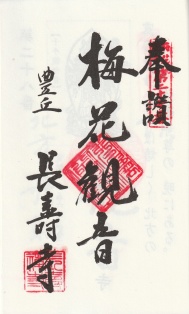 奉讃
梅花観音
豊丘
長壽寺